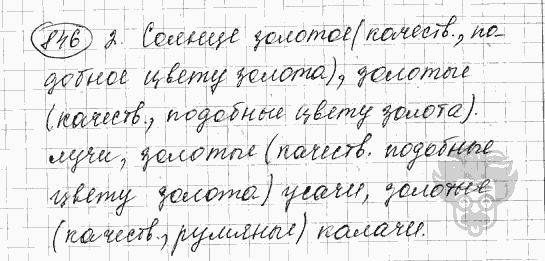 846 2. Солнце золотое (качеств., по-
добное цвету золота), золотые
(качеств., подобные цвету золота).
лучи, золотые (качеств. подобные
цвету золота) усачи, золотые
(качеств., румяные) калачи.